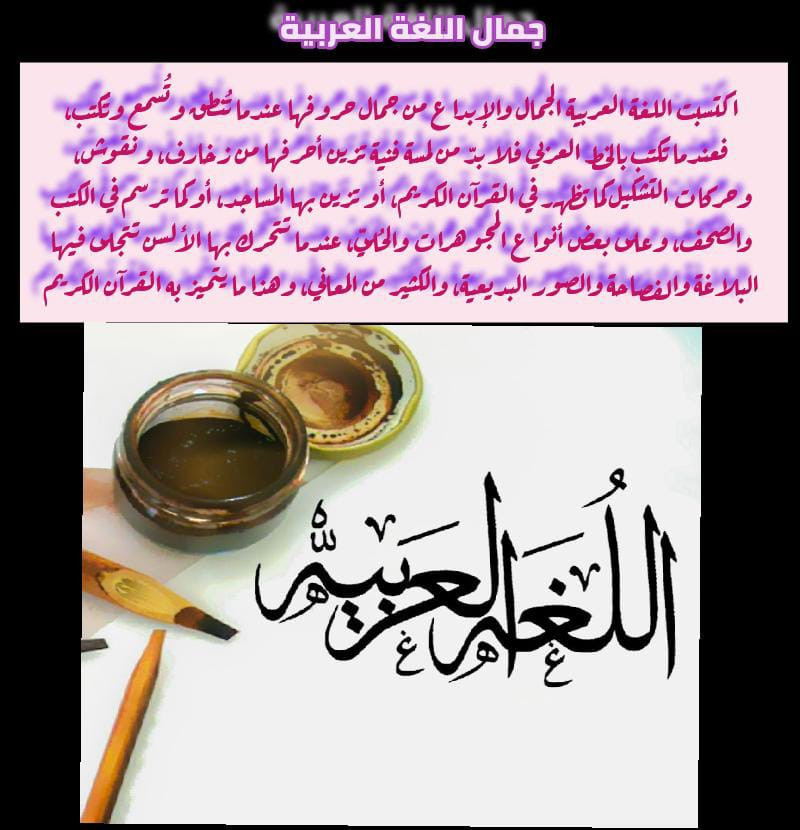 جمال اللغة العربية
اكتسبت اللغة العربية الجمال والإبداع من جمال حروفها عندما تُنطق وتُسمع وتكتب،
فعندما تكتب بالخط العربي فلا بدّ من لمسة فنية تزين أحرفها من زخارف، ونقوش،
وحركات التشكيل كما تظهر في القرآن الكريم، أو تزين بها المساجد، أو كما ترسم في الكتب
والصحف، وعلى بعض أنواع المجوهرات والحُليّ، عندما تتحرك بها الألسن تتجلى فيها
البلاغة والفصاحة والصور البديعية، والكثير من المعاني، وهذا ما يتميز به القرآن الكريم
اللُغَه العَربيه